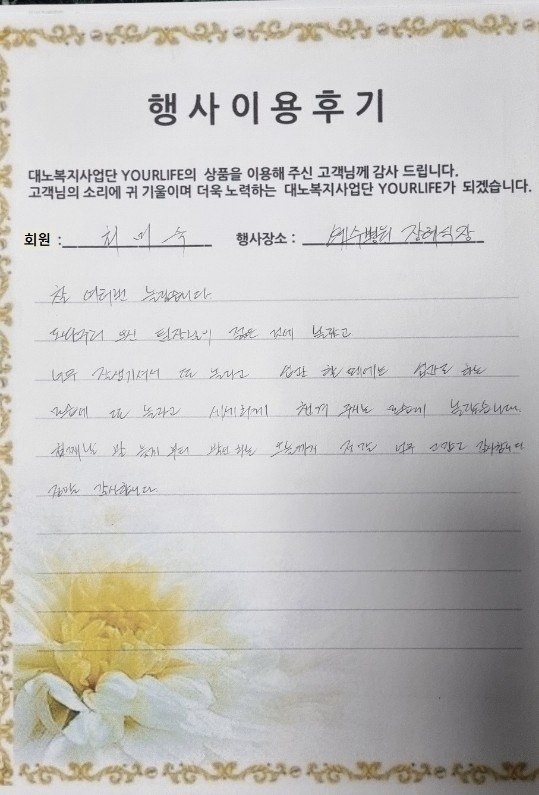 행사이용후기
대노복지사업단 YOURLIFE의 상품을 이용해 주신 고객님께 감사 드립니다.
고객님의 소리에 귀 기울이며 더욱 노력하는 대노복지사업단 YOURLIFE가 되겠습니다.
회원 : 최미숙 행사장소 : 예수병원 장례식장
참 여러번 놀랐습니다
오신 팀장님이 젊은 것에 놀라고
너무 잘생기셔서 또 놀라고 입관 할 때에는 입관을 하는
모습에 또 놀라고 세세하게 챙겨 주시는 모습에 놀랐습니다.
첫째날 밤 늦게 부터 발인 하는 오늘까지 정말 너무 감사합니다
정말 감사합니다.